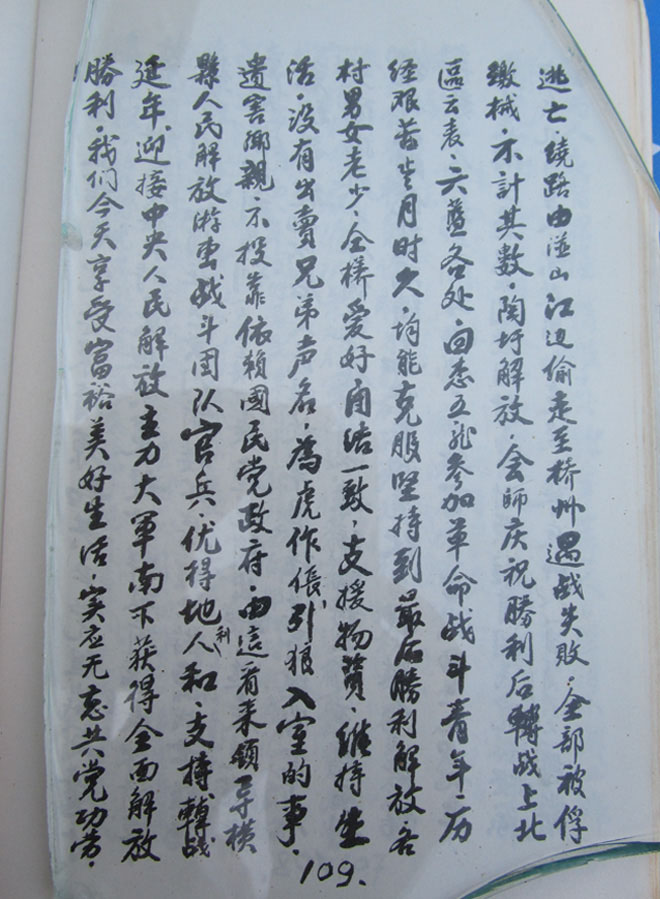 逃亡·繞路由滥山江边偷走至桥州遇战失败·全部被俘
繳械·不計其数·陶圩解放·会師庆祝勝利后轉战上北
區云表·六蓝各处·回忞五龙参加革命战斗青年·历
经艰苦岁月时久·均能克服坚持到最后勝利解放·各
村男女老少·全桥爱好甪结一致·支援物資·維持生
活·没有出賣兄弟声名·為虎作倀引狼入室的事·
遺害鄉親·不投靠依賴國民党政府·由這看来領导横
縣人民解放游击战斗团队官兵·优得地利人和·支持轉战
延年迎接中央人民解放主力大軍南下获得全面解放
勝利·我们今天享受富裕美好生活·实应无忘共党功劳·
109.